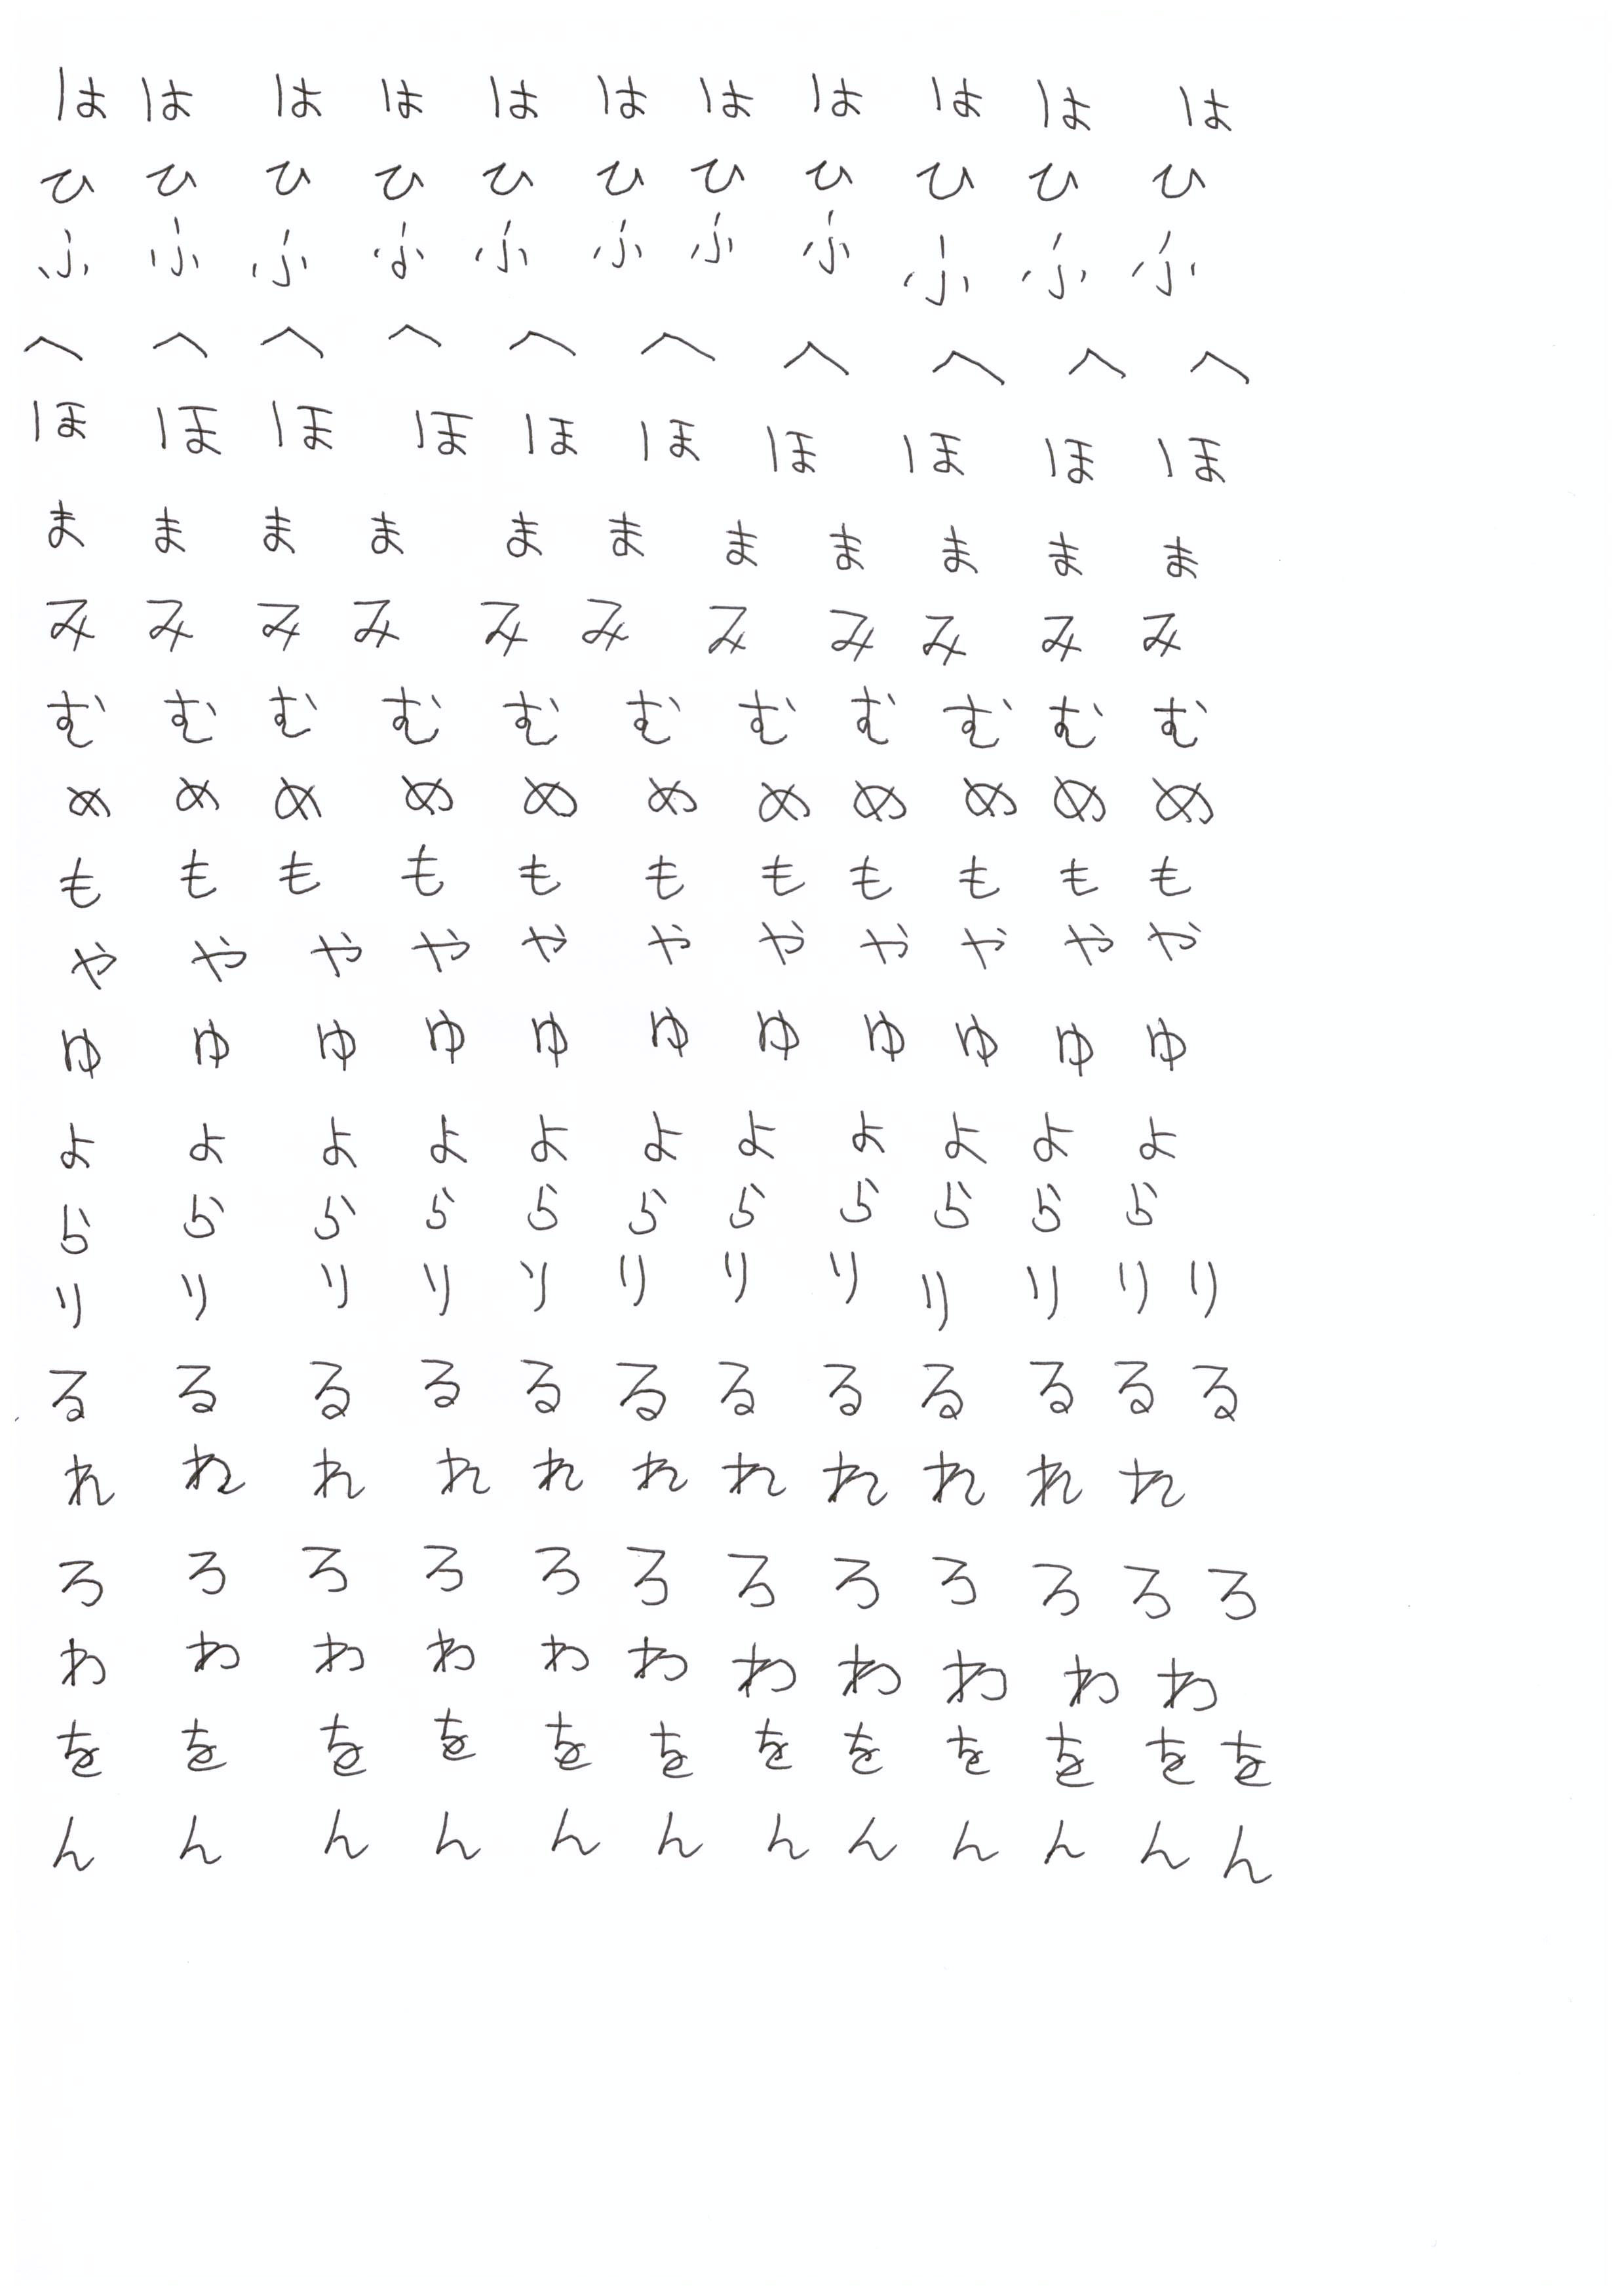 は は は は は は は は は は は
ひ ひ ひ ひ ひ ひ ひ ひ ひ ひ ひ
ふ ふ ふ ふ ふ ふ ふ ふ ふ ふ ふ
へ へ へ へ へ へ へ へ へ へ
ほ ほ ほ ほ ほ ほ ほ ほ ほ ほ
ま ま ま ま ま ま ま ま ま ま ま
み み み み み み み み み み み
む む む む む む む む む む む
め め め め め め め め め め め
も も も も も も も も も も も
や や や や や や や や や や や
ゆ ゆ ゆ ゆ ゆ ゆ ゆ ゆ ゆ ゆ ゆ
よ よ よ よ よ よ よ よ よ よ よ
ら ら ら ら ら ら ら ら ら ら ら
り り り り り り り り り り り り
る る る る る る る る る る る る
れ れ れ れ れ れ れ れ れ れ れ
ろ ろ ろ ろ ろ ろ ろ ろ ろ ろ ろ ろ
わ わ わ わ わ わ わ わ わ わ わ
を を を を を を を を を を を を
ん ん ん ん ん ん ん ん ん ん ん ん